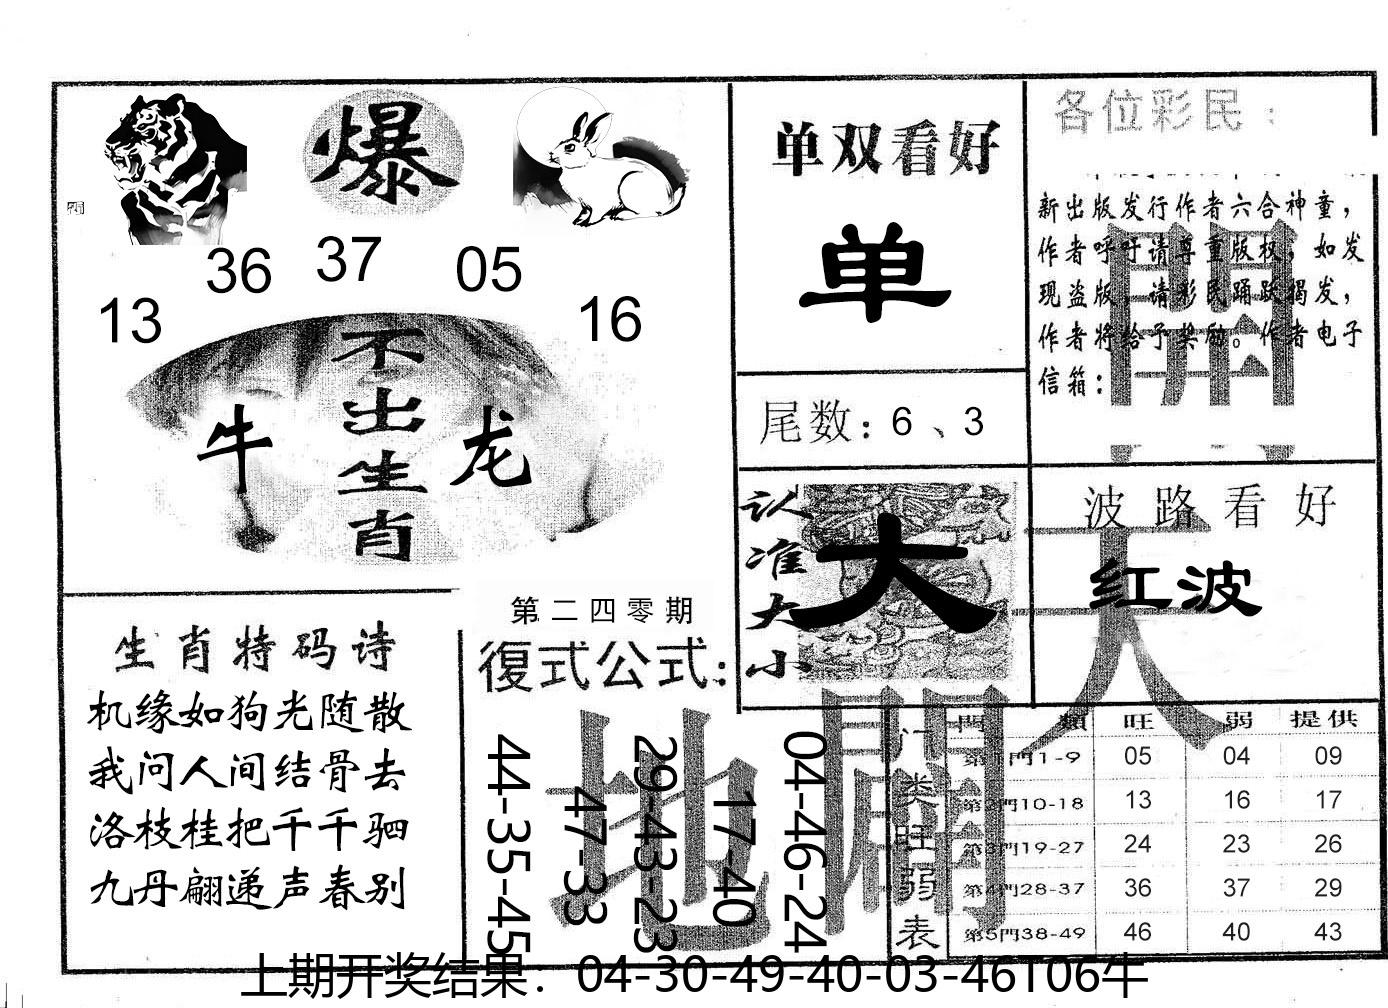 爆
36 37 05
13 16
不出生肖
牛 龙
单双看好
单
尾数：6、3
各位彩民：
新出版发行作者六合神童，
作者呼吁请尊重版权，如发
现盗版，请彩民踊跃揭发，
作者将给予奖励。作者电子
信箱：
認准大小
大
波路看好
红波
天開
地闢
生肖特码诗
机缘如狗光随散
我问人间结骨去
洛枝桂把千千驷
九丹翩递声春别
第二四零期
復式公式：
44-35-45
47-33
29-43-23
17-40
04-46-24
门类旺弱表
門 類 旺 弱 提供
第1門1-9 05 04 09
第2門10-18 13 16 17
第3門19-27 24 23 26
第4門28-37 36 37 29
第5門38-49 46 40 43
上期开奖结果：04-30-49-40-03-46T06牛